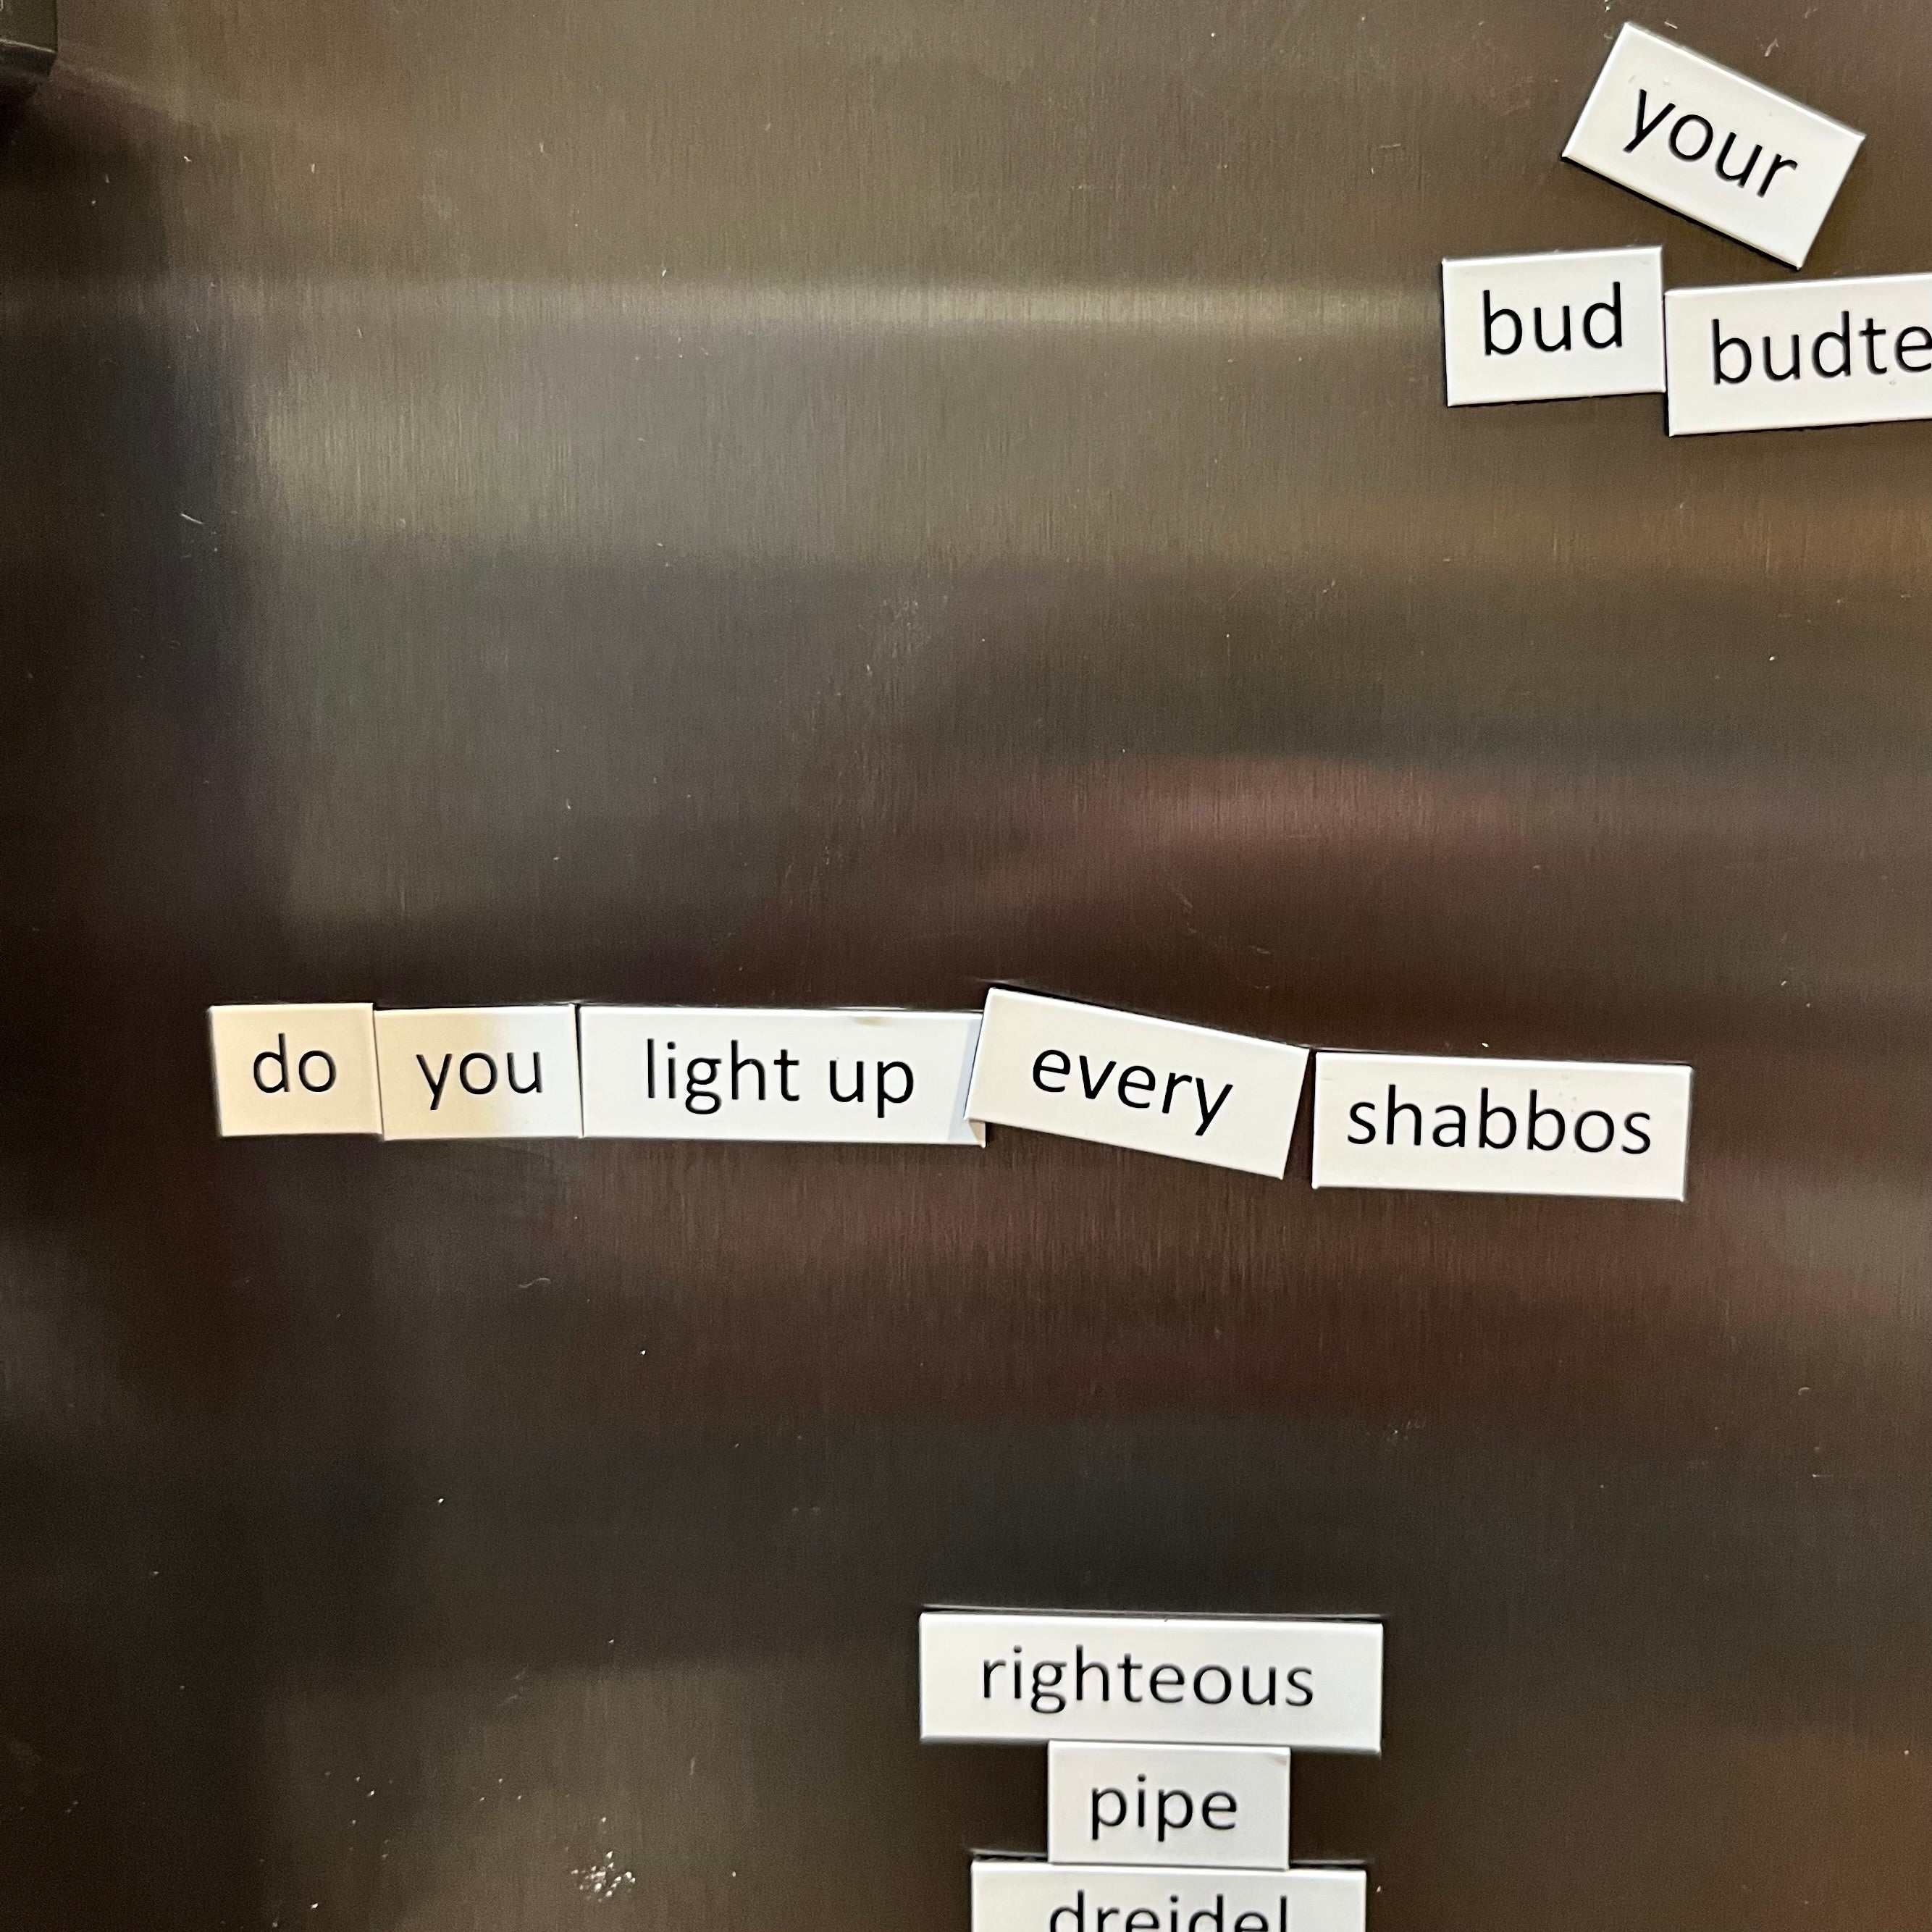 your
bud budte
do you light up every shabbos
righteous
pipe
dreidel